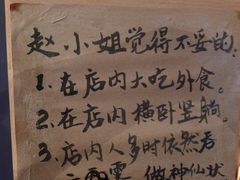 赵小姐觉得不妥的:
1.在店内大吃外食。
2.在店内横卧竖躺。
3.店内人多时依然看
做神仙状